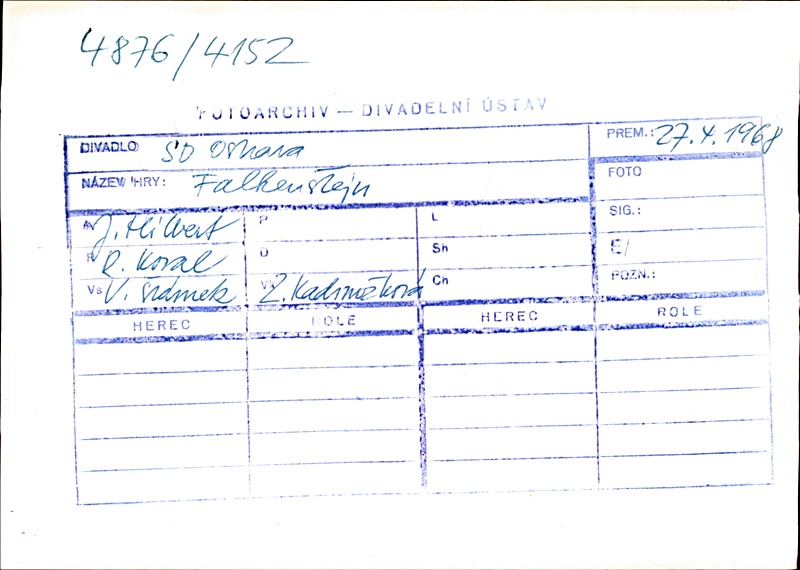 4876/4152
FOTOARCHIV — DIVADELNÍ ÚSTAV
DIVADLO SD Ostrava PREM.: 27.4.1968
NÁZEV HRY: Falkenštejn FOTO
A J. Hilbert P L SIG.:
R R. Koval D Sh E/
Vs V. Šrámek Z. Kadrnožková Ch POZN.:
HEREC ROLE HEREC ROLE